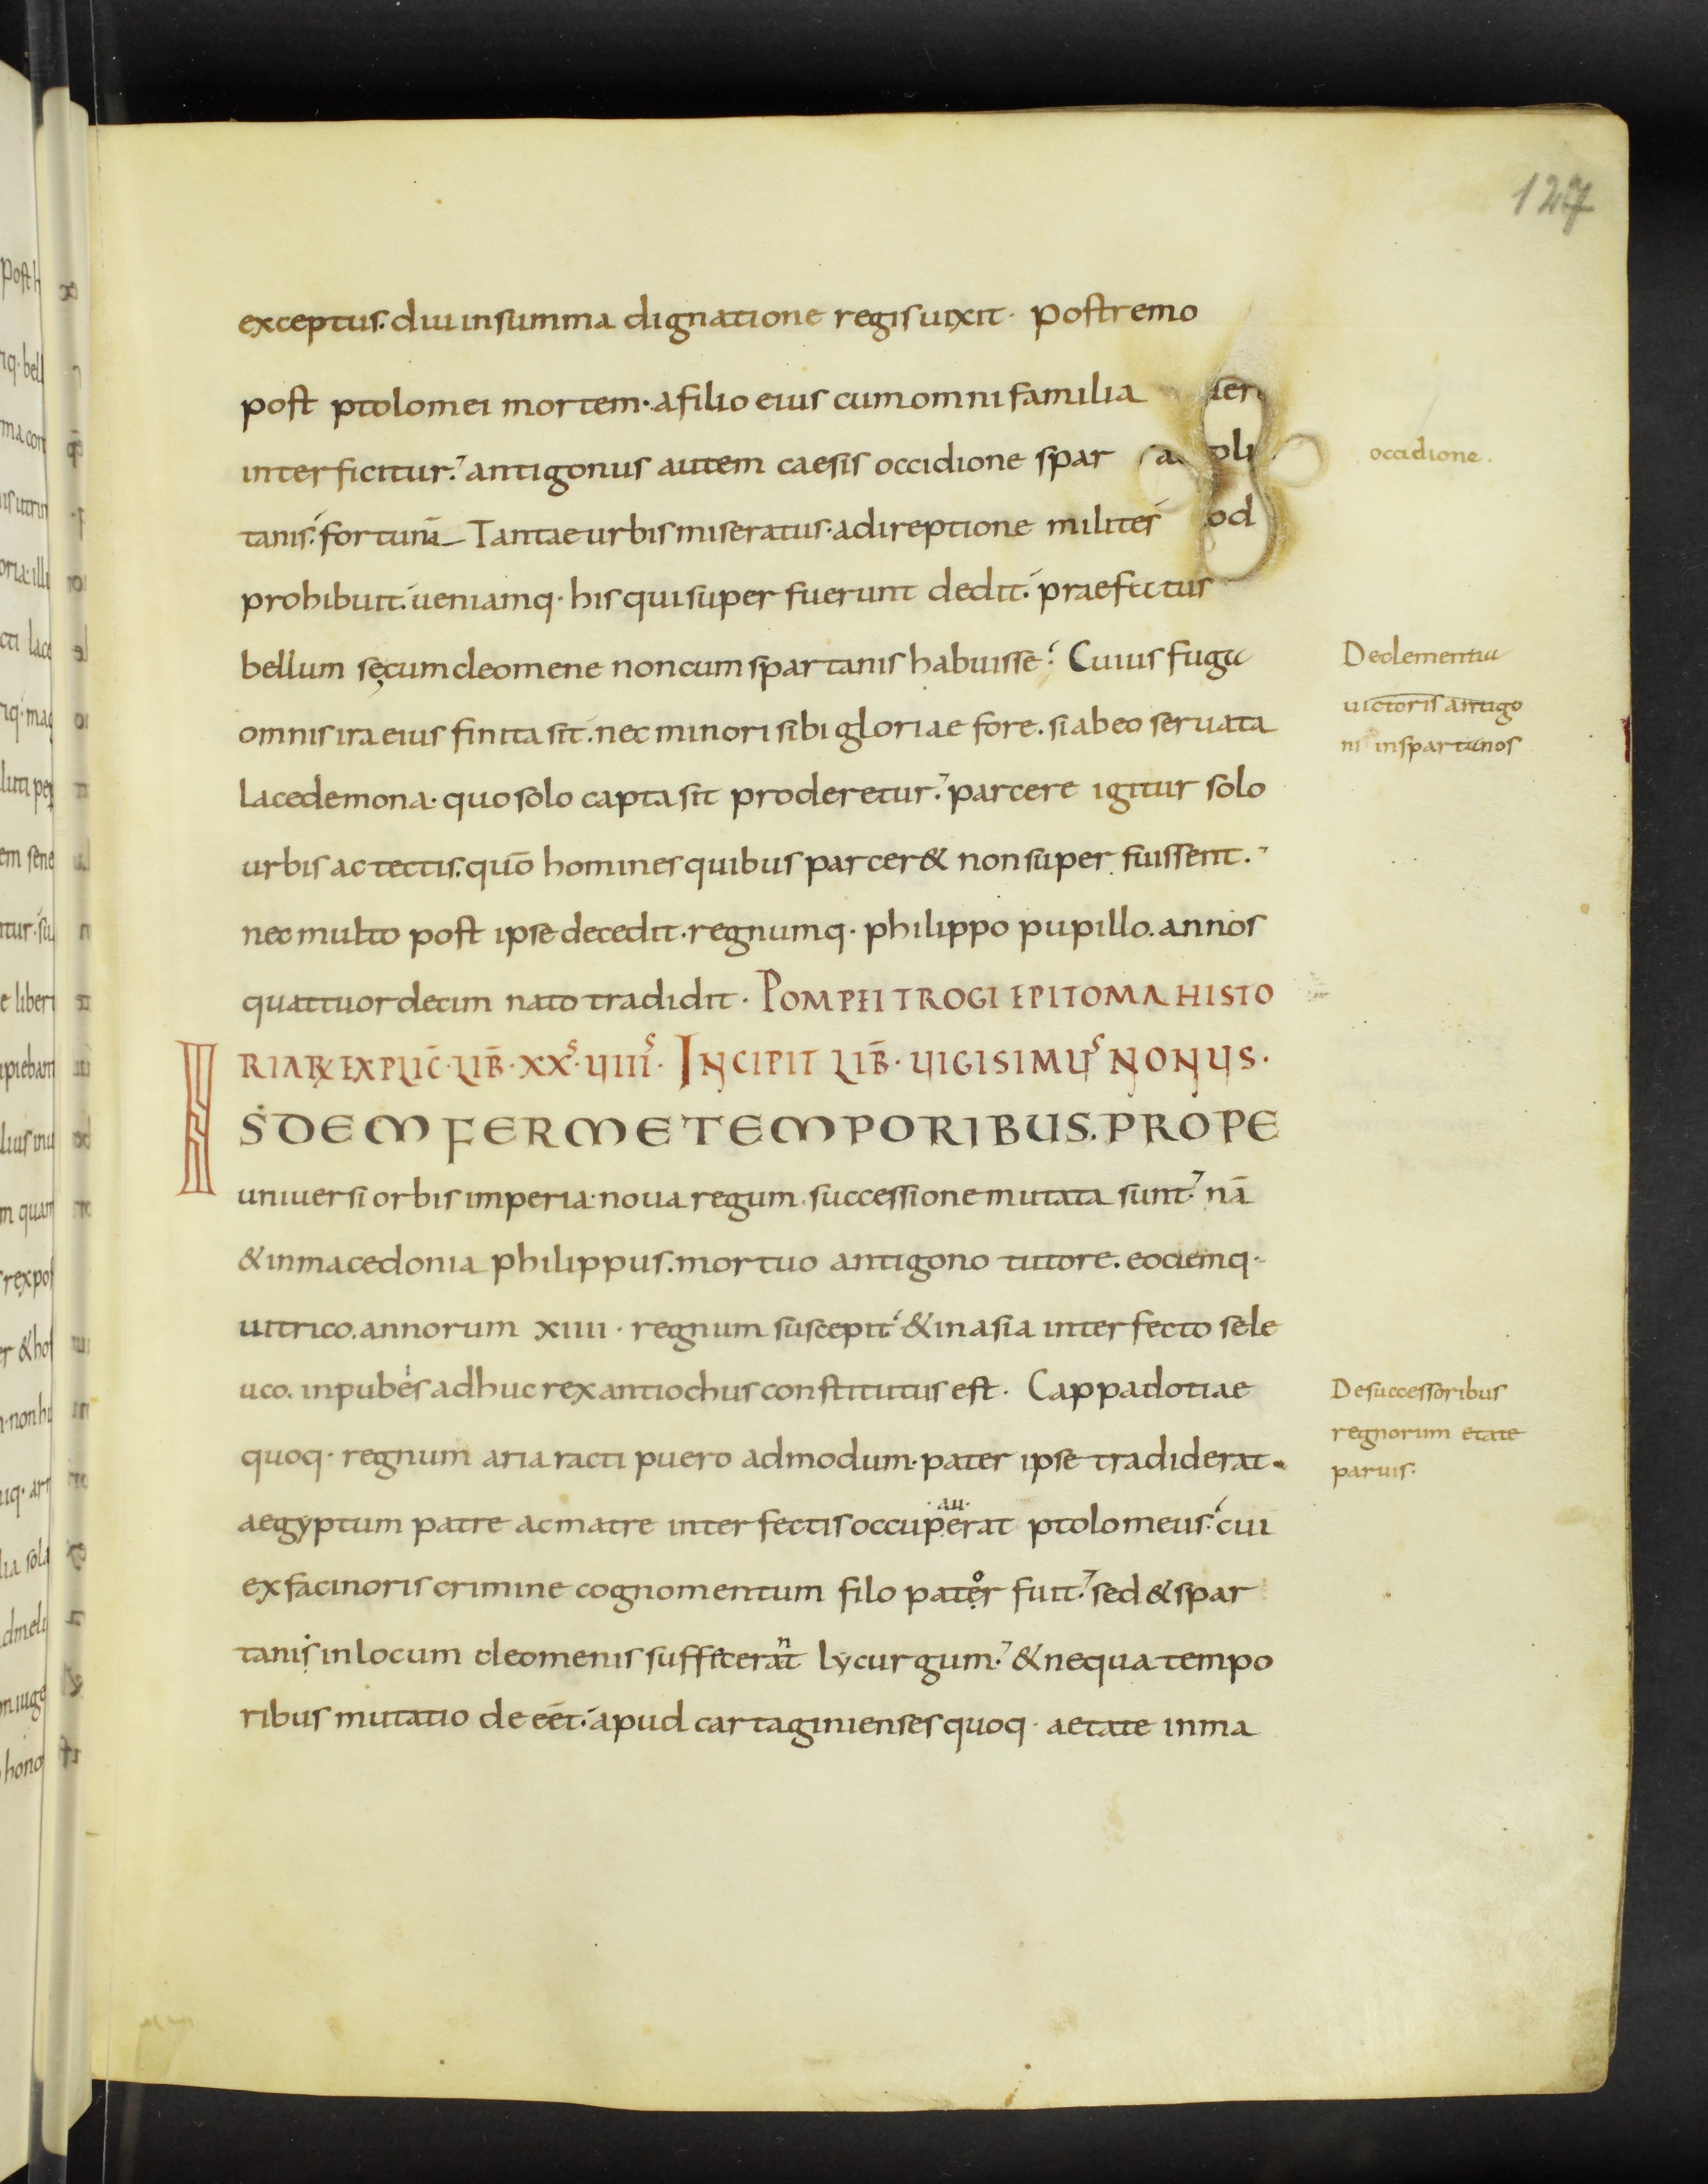 127
exceptus. diu in summa dignatione regis uixit. postremo
post ptolomei mortem. a filio eius cum omni familia
interficitur. antigonus autem caesis occidione spar
occidione.
tanis. fortunā Tantae urbis miseratus. a direptione milites
probibuit. ueniamq. his qui super fuerunt dedit. praefatus
bellum se cum cleomene non cum spartanis habuisse. Cuius fuga
omnis ira eius finita sit. nec minori sibi gloriae fore. si ab eo seruata
Declementia
uictoris antigo
ni inspartanos
lacedemona. quo solo capta sit proderetur. parcere igitur solo
urbis ac tectis. quō homines quibus parcer& non super fuissent.
nec multo post ipse decedit. regnumq. philippo pupillo. annos
quattuordecim nato tradidit. POMPEI TROGI EPITOMA HISTO
RIARꝜ EXPLIC̄. LIB̄. XXˢ. UIIIˢ. INCIPIT LIB̄. UIGISIMUˢ NONUS.
IṠDEM FERME TEMPORIBUS. PROPE
uniuersi orbis imperia. noua regum successione mutata sunt. nā
& in macedonia philippus. mortuo antigono tutore. eodemq.
uitrico. annorum xiiii. regnum suscepit & in asia interfecto sele
uco. inpubes adhuc rex antiochus constitutus est. Cappadotiae
quoq. regnum ariaracti puero admodum. pater ipse tradiderat.
Desuccessoribus
regnorum etate
paruis.
.au.
aegyptum patre ac matre interfectis occuperat ptolomeus. cui
o
ex facinoris crimine cognomentum filo pater fuit. sed & spar
n
tanis in locum cleomenis suffecerat lycurgum. & nequa tempo
ribus mutatio de eēt. apud cartaginienses quoq. aetate inma